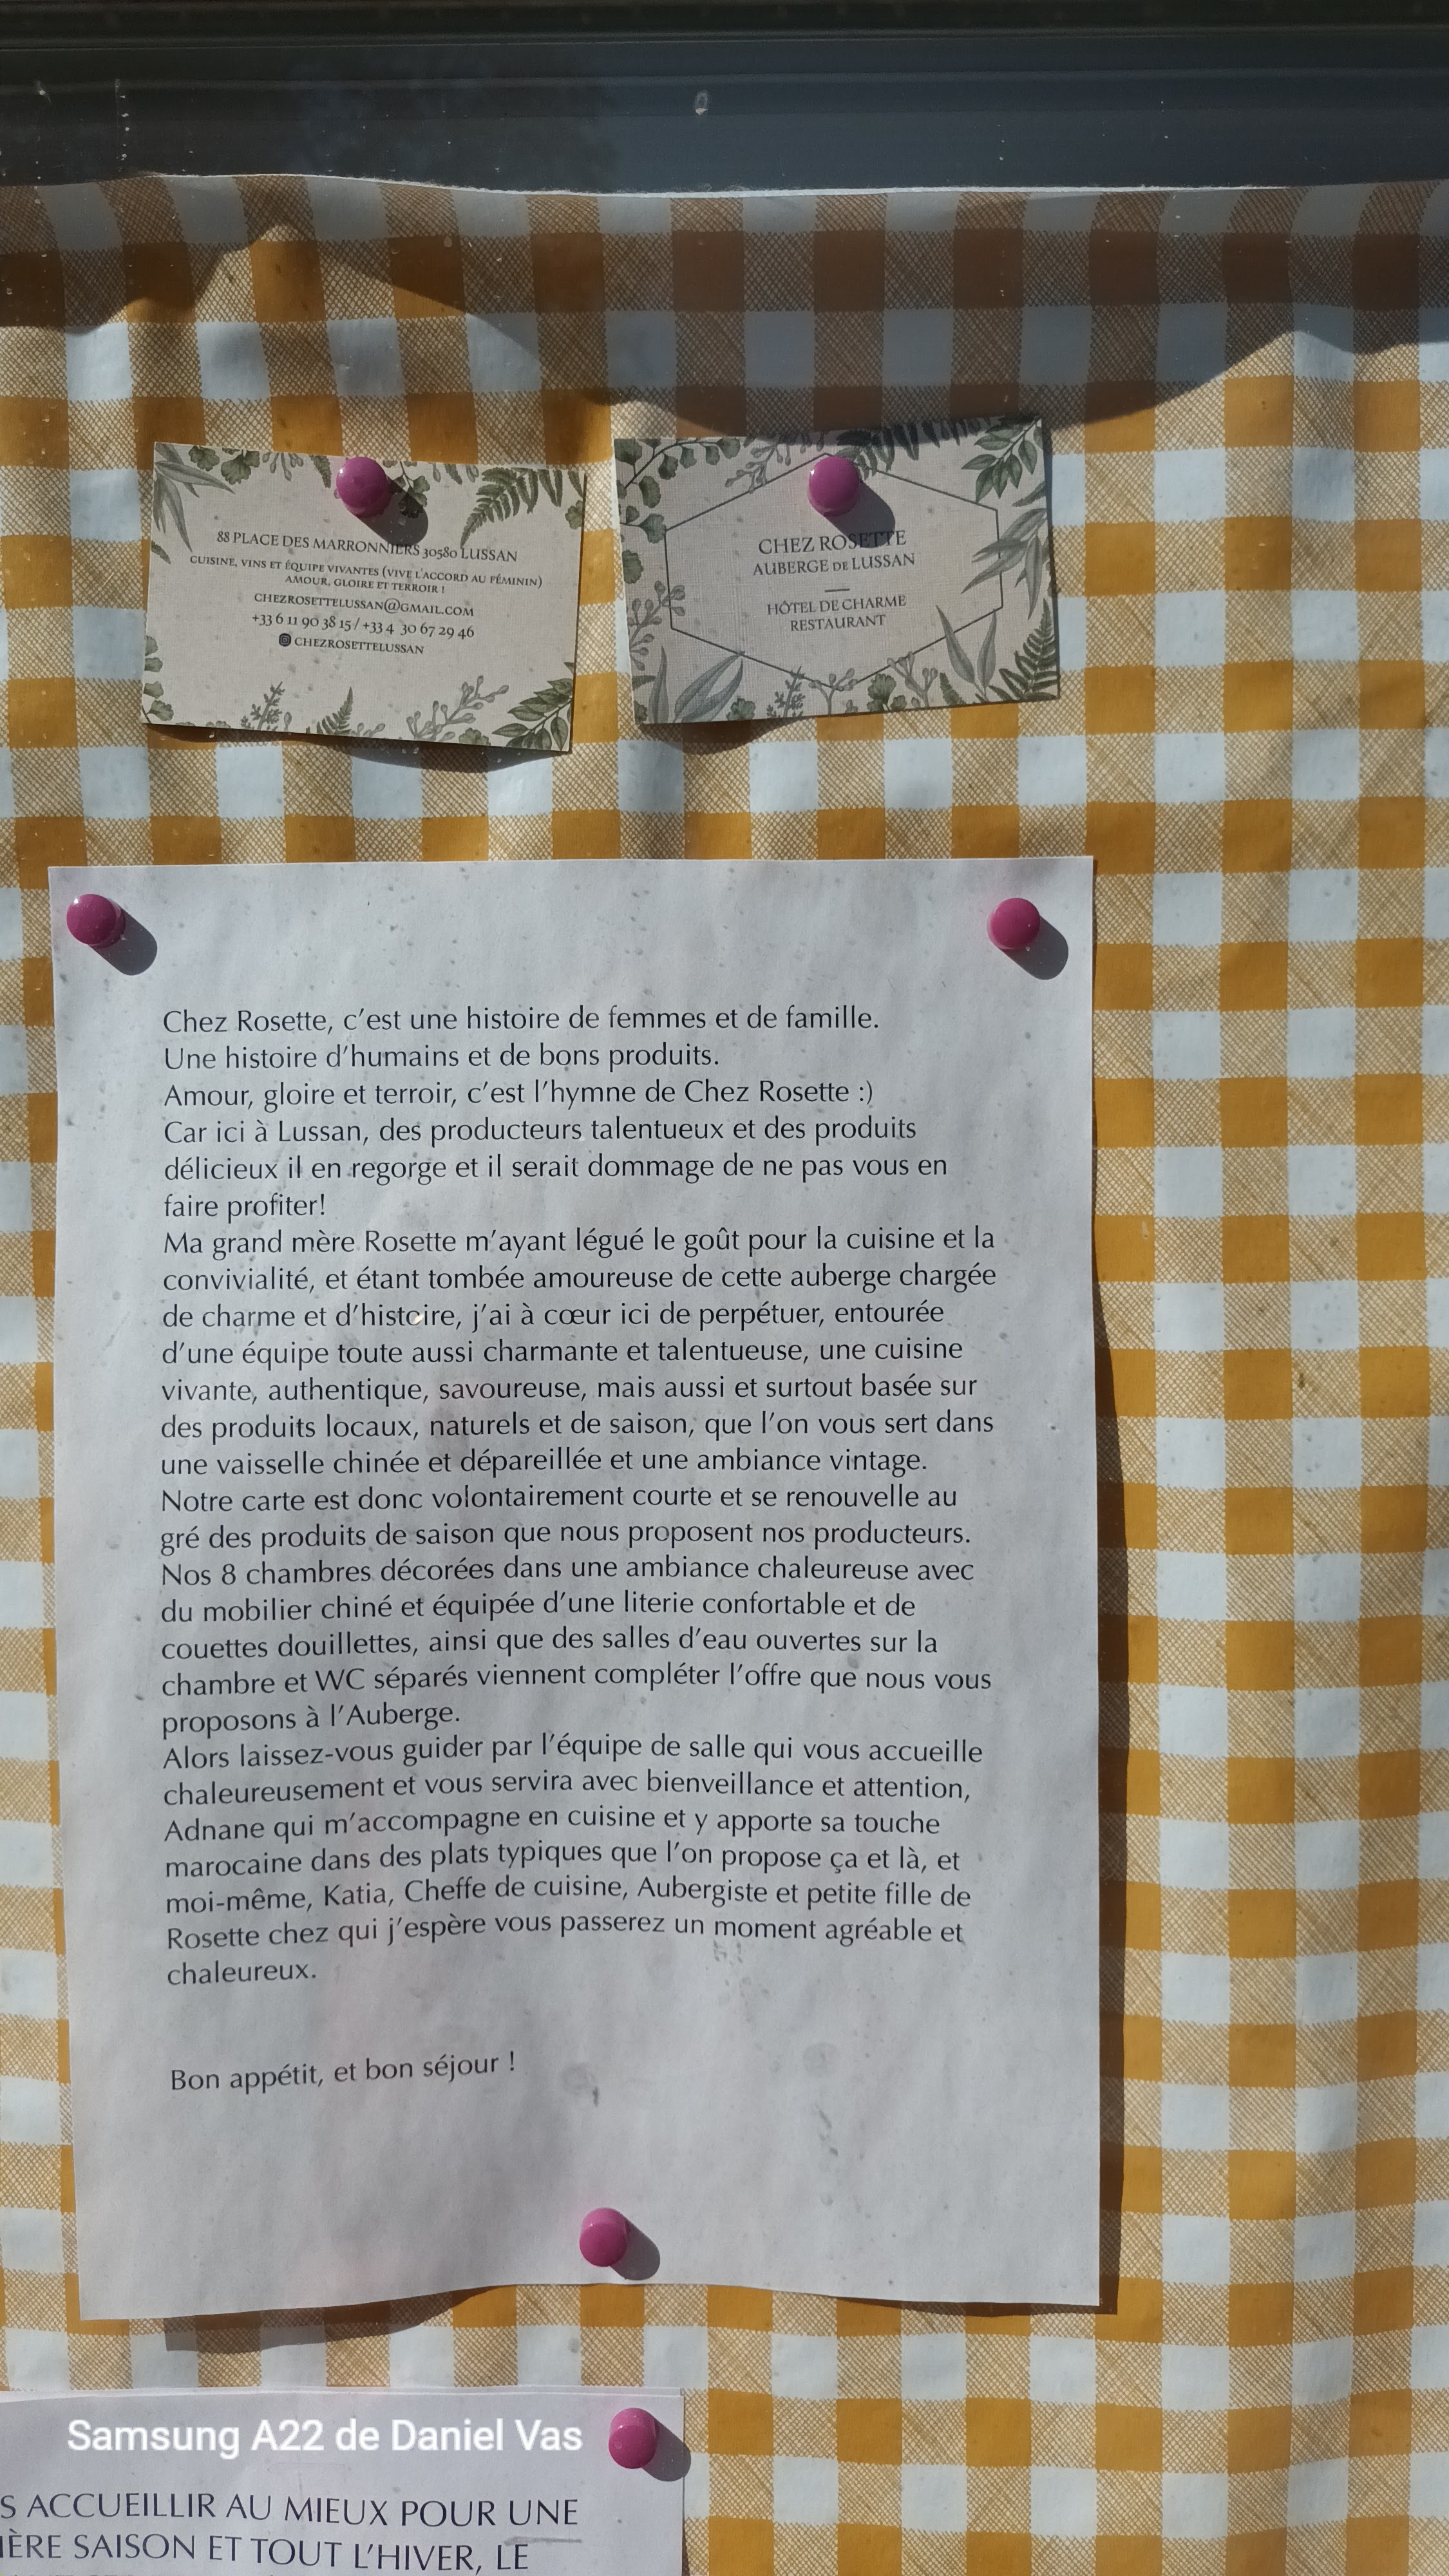 88 PLACE DES MARRONNIERS 30580 LUSSAN
CUISINE, VINS ET ÉQUIPE VIVANTES (VIVE L'ACCORD AU FÉMININ)
AMOUR, GLOIRE ET TERROIR !
CHEZROSETTELUSSAN@GMAIL.COM
+33 6 11 90 38 15 / +33 4 30 67 29 46
CHEZROSETTELUSSAN
CHEZ ROSETTE
AUBERGE DE LUSSAN
HÔTEL DE CHARME
RESTAURANT
Chez Rosette, c'est une histoire de femmes et de famille.
Une histoire d'humains et de bons produits.
Amour, gloire et terroir, c'est l'hymne de Chez Rosette :)
Car ici à Lussan, des producteurs talentueux et des produits
délicieux il en regorge et il serait dommage de ne pas vous en
faire profiter!
Ma grand mère Rosette m'ayant légué le goût pour la cuisine et la
convivialité, et étant tombée amoureuse de cette auberge chargée
de charme et d'histoire, j'ai à cœur ici de perpétuer, entourée
d'une équipe toute aussi charmante et talentueuse, une cuisine
vivante, authentique, savoureuse, mais aussi et surtout basée sur
des produits locaux, naturels et de saison, que l'on vous sert dans
une vaisselle chinée et dépareillée et une ambiance vintage.
Notre carte est donc volontairement courte et se renouvelle au
gré des produits de saison que nous proposent nos producteurs.
Nos 8 chambres décorées dans une ambiance chaleureuse avec
du mobilier chiné et équipée d'une literie confortable et de
couettes douillettes, ainsi que des salles d'eau ouvertes sur la
chambre et WC séparés viennent compléter l'offre que nous vous
proposons à l'Auberge.
Alors laissez-vous guider par l'équipe de salle qui vous accueille
chaleureusement et vous servira avec bienveillance et attention,
Adnane qui m'accompagne en cuisine et y apporte sa touche
marocaine dans des plats typiques que l'on propose ça et là, et
moi-même, Katia, Cheffe de cuisine, Aubergiste et petite fille de
Rosette chez qui j'espère vous passerez un moment agréable et
chaleureux.
Bon appétit, et bon séjour !
Samsung A22 de Daniel Vas
S ACCUEILLIR AU MIEUX POUR UNE
IÈRE SAISON ET TOUT L'HIVER, LE